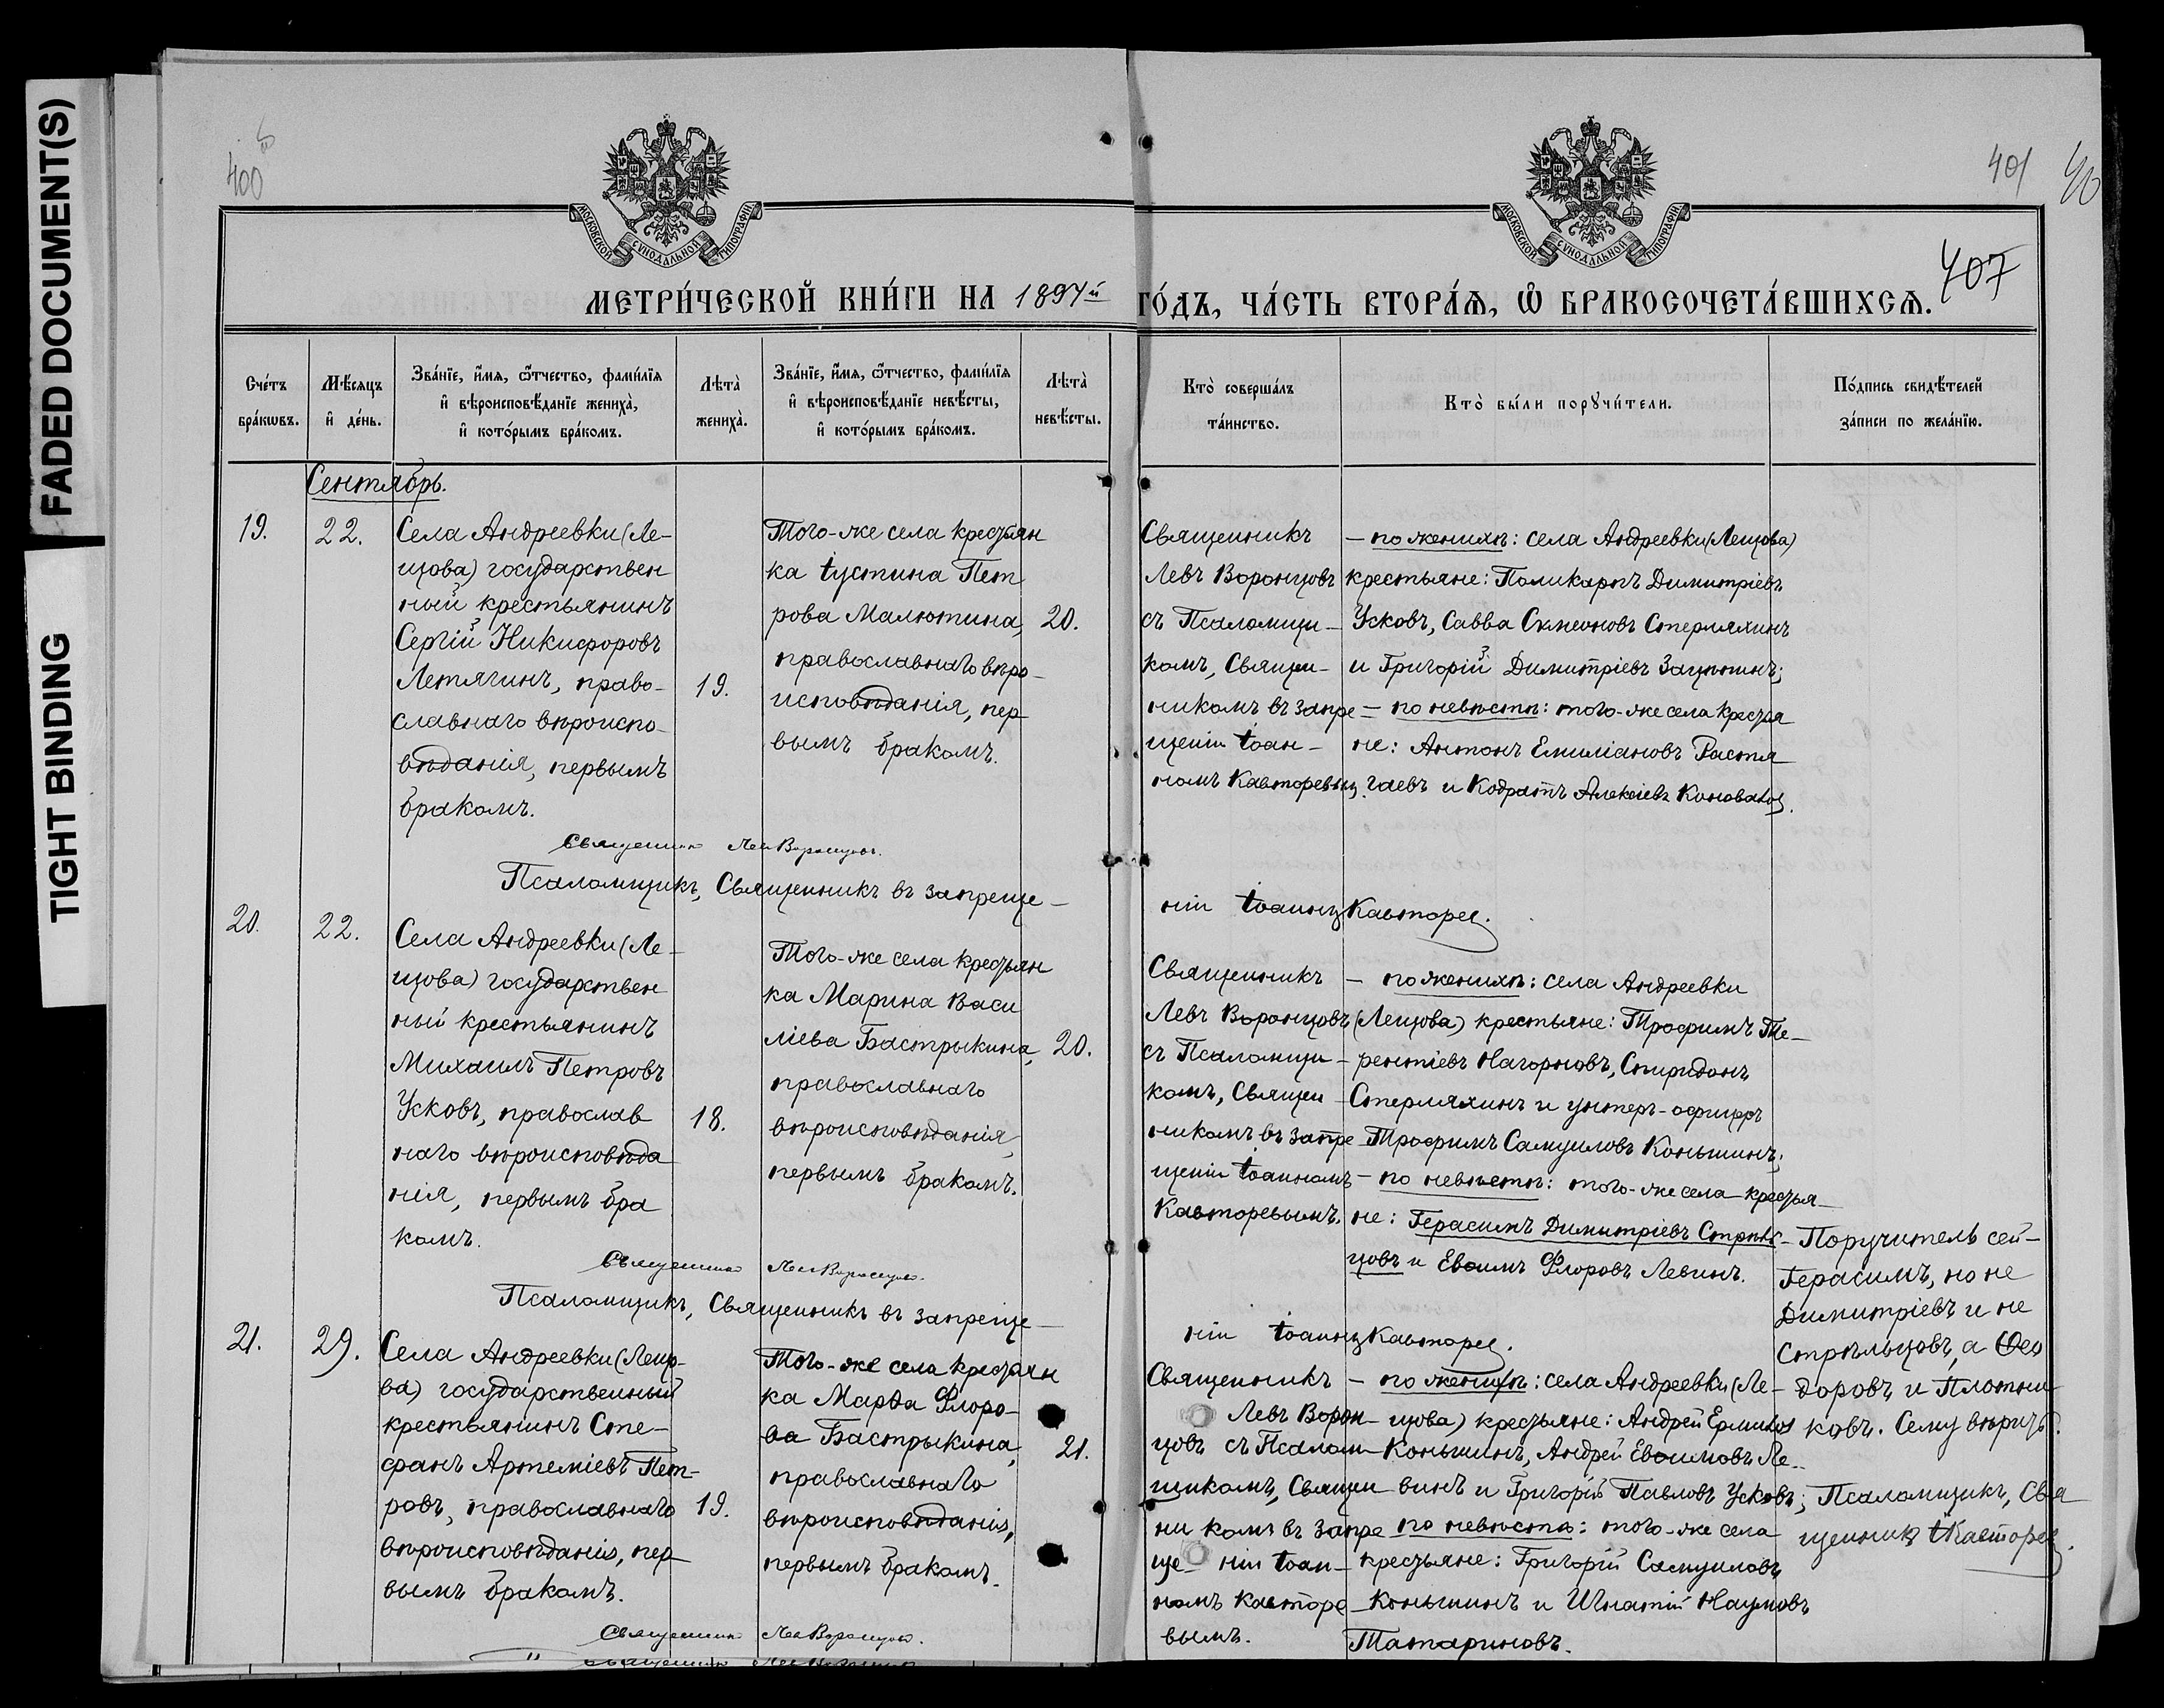 FADED DOCUMENT(S)
TIGHT BINDING
400
401
407
МОСКОВСКОЙ СѴНОДАЛЬНОЙ ТИПОГРАФІИ
МОСКОВСКОЙ СѴНОДАЛЬНОЙ ТИПОГРАФІИ
МЕТРИ́ЧЕСКОЙ КНИ́ГИ НА 1897й ГО́ДЪ, ЧА́СТЬ ВТОРА́Ѧ, Ѽ БРАКОСОЧЕТА́ВШИХСѦ.
Сче́тъ
бра́кωвъ.
Мѣ́сяцъ
и҆ де́нь.
Зва́нїе, и҆́мя, ѻ҆́тчество, фами́лїя
и҆ вѣроисповѣ́данїе жениха̀,
и҆ кото́рымъ бра́комъ.
Лѣта̀
жениха̀.
Зва́нїе, и҆́мя, ѻ҆́тчество, фами́лїя
и҆ вѣроисповѣ́данїе невѣ́сты,
и҆ кото́рымъ бра́комъ.
Лѣта̀
невѣ́сты.
Кто̀ соверша́лъ
та́инство.
Кто̀ бы́ли порꙋчи́тели.
По́дпись свидѣ́телей
за́писи по жела́нїю.
Сентябрь.
19.
22.
Села Андреевки (Ле-
щова) государствен
ный крестьянинъ
Сергій Никифоровъ
Летягинъ, право-
славнаго вѣроиспо-
вѣданія, первымъ
бракомъ.
19.
Того-же села крестьян
ка Іустина Пет
рова Малютина,
православнаго вѣро-
исповѣданія, пер
вымъ бракомъ.
20.
Священникъ
Левъ Воронцовъ
съ Псаломщи-
комъ, Священ-
никомъ въ запре
щеніи Іоан-
номъ Касторевым.
- по женихѣ: села Андреевки (Лещова)
крестьяне: Поликарпъ Димитріевъ
Усковъ, Савва Симеоновъ Стерляхинъ
и Григорій Димитріевъ Зацѣпинъ;
- по невѣстѣ: того-же села крестья
не: Антонъ Емиліановъ Растя
гаевъ и Кодратъ Алексіевъ Коновалов.
Священникъ Левъ Воронцовъ.
Псаломщикъ, Священникъ въ запреще-
ніи Іоаннъ Касторев.
20.
22.
Села Андреевки (Ле-
щова) государствен
ный крестьянинъ
Михаилъ Петровъ
Усковъ, православ
наго вѣроисповѣда
нія, первымъ бра
комъ.
18.
Того-же села крестьян
ка Марина Васи
ліева Бастрыкина,
православнаго
вѣроисповѣданія,
первымъ бракомъ.
20.
Священникъ
Левъ Воронцовъ
съ Псаломщи-
комъ, Священ
никомъ въ запре
щеніи Іоанномъ
Касторевымъ.
- по женихѣ: села Андреевки
(Лещова) крестьяне: Трофимъ Те-
рентіевъ Нагорновъ, Спиридонъ
Стерляхинъ и унтеръ-офицеръ
Трофимъ Самуиловъ Коньшинъ;
- по невѣстѣ: того-же села крестья-
не: Герасимъ Димитріевъ Стрѣль-
цовъ и Евѳимъ Флоровъ Левинъ.
Поручитель сей-
Герасимъ, но не
Димитріевъ и не
Стрѣльцовъ, а Ѳео
доровъ и Плотни-
ковъ. Сему вѣрить.
Псаломщикъ, Свя
щенникъ І Касторев.
Священникъ Левъ Воронцовъ.
Псаломщикъ, Священникъ въ запреще-
ніи Іоаннъ Касторев.
21.
29.
Села Андреевки (Лещо-
ва) государственный
крестьянинъ Сте-
фанъ Артеміевъ Пет-
ровъ, православнаго
вѣроисповѣданія, пер
вымъ бракомъ.
19.
Того-же села крестьян
ка Марѳа Флоро-
ва Бастрыкина,
православнаго
вѣроисповѣданія,
первымъ бракомъ.
21.
Священникъ
Левъ Ворон-
цовъ съ Псалом-
щикомъ, Священ
никомъ въ запре
щеніи Іоан-
номъ Касторе-
вымъ.
- по женихѣ: села Андреевки (Ле-
щова) крестьяне: Андрей Ермилов
Коньшинъ, Андрей Евѳимовъ Ле-
винъ и Григорій Павловъ Усковъ;
по невѣстѣ: того-же села
крестьяне: Григорій Самуиловъ
Коньшинъ и Игнатій Наумовъ
Татариновъ.
Священникъ Левъ Воронцовъ.